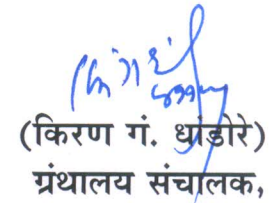 (किरण गं. धांडोरे)
ग्रंथालय संचालक,